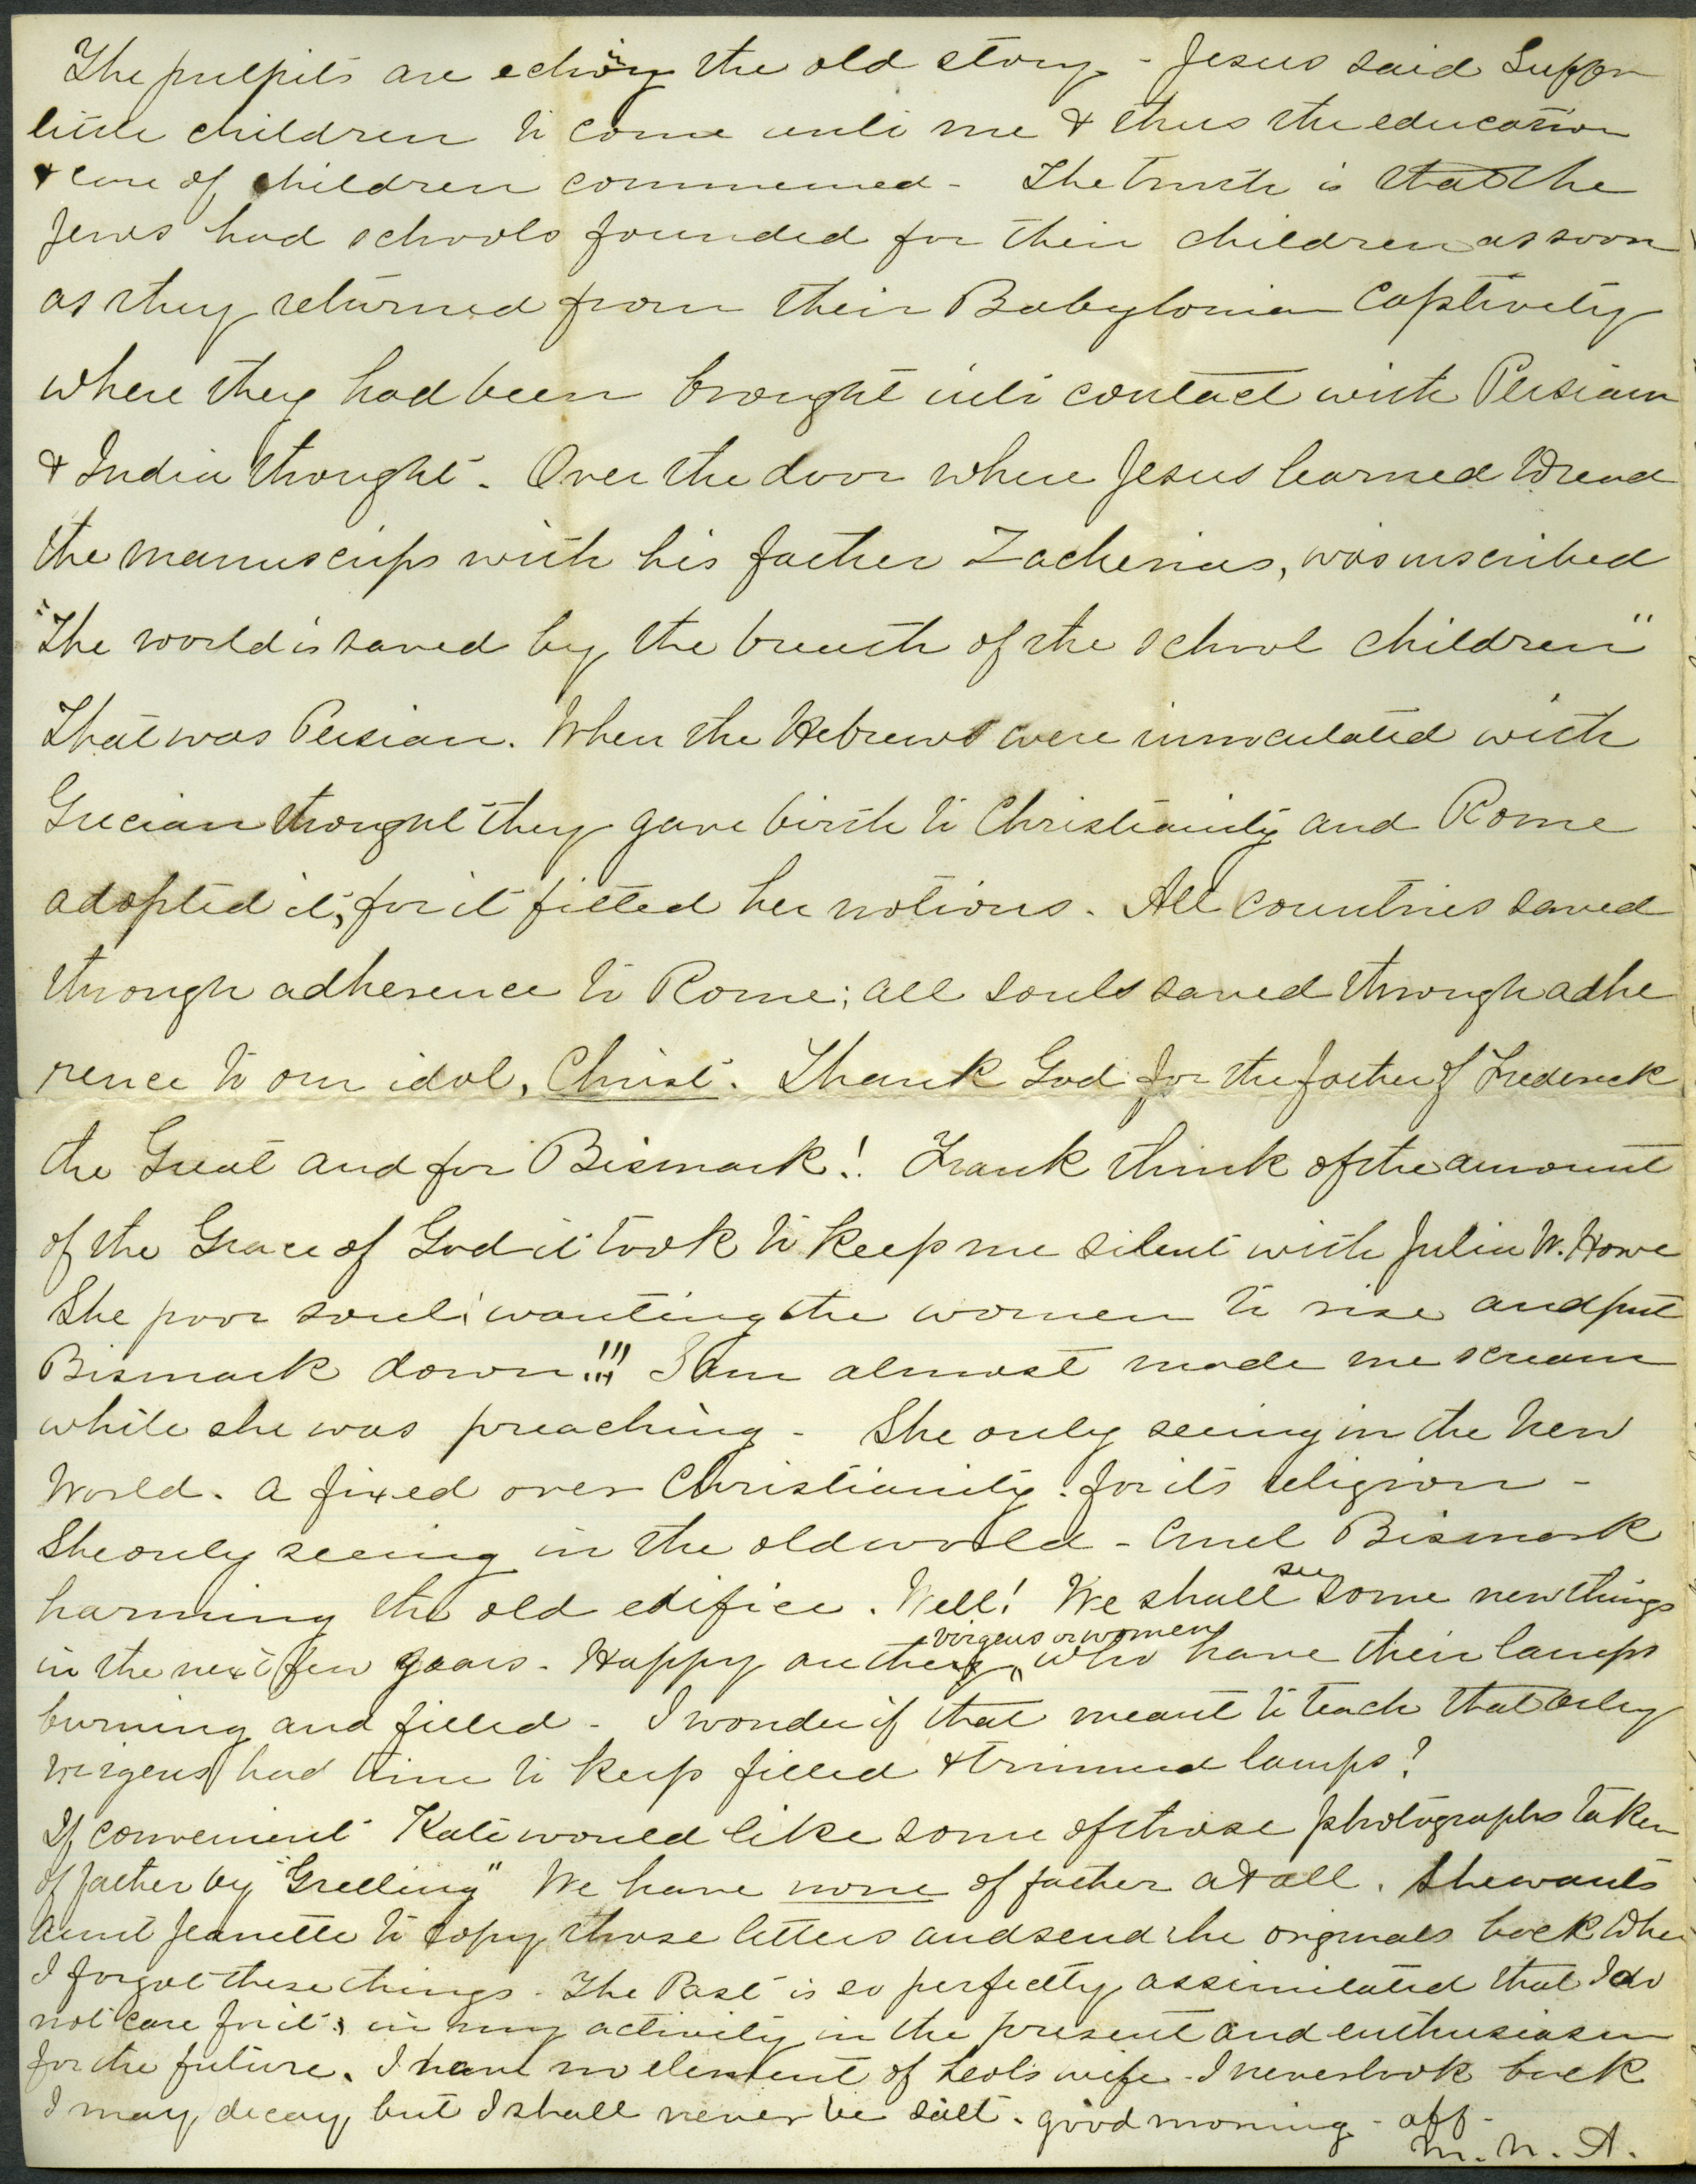 The pulpits are echoing the old story - Jesus said Suffer
little children to come unto me & thus the education
& care of children commenced - The truth is that the
Jews had schools founded for their children as soon
as they returned from their Babylonian Captivity
where they had been brought into contact with Persian
& India thought - Over the door where Jesus learned to read
the manuscrips with his father Zacherias, was inscribed
"The world is saved by the breath of the school children"
That was Persian. When the Hebrews were innoculated with
Grecian thought they gave birth to Christianity and Rome
adopted it, for it fitted her notions. All countries saved
through adherence to Rome; all souls saved through adhe
rence to our idol, Christ. Thank God for the father of Frederick
the Great and for Bismark! Frank think of the amount
of the Grace of God it took to keep me silent with Julia W. Howe
She poor soul! wanting the women to rise and put
Bismark down!!! Sam almost made me scream
while she was preaching - She only seeing in the New
World. a fixed over Christianity. for its religion -
She only seeing in the old world - Cruel Bismark
harming the old edifice. Well! We shall see some new things
in the next few years - Happy are they virgens or women who have their lamps
burning and filled - I wonder if that meant to teach that only
virgens had time to keep filled & trimmed lamps?
If convenient Kate would like some of those photographs taken
of father by "Greeling" We have none of father at all. She wants
Aunt Jeanette to copy those letters and send the originals back
I forgot these things - The Past is so perfectly assimilated that I do
not care for it, in my activity in the present and enthusiasm
for the future. I have no element of Leot's wife - I never look back
I may decay but I shall never be salt. good morning - aff -
M. N. A.